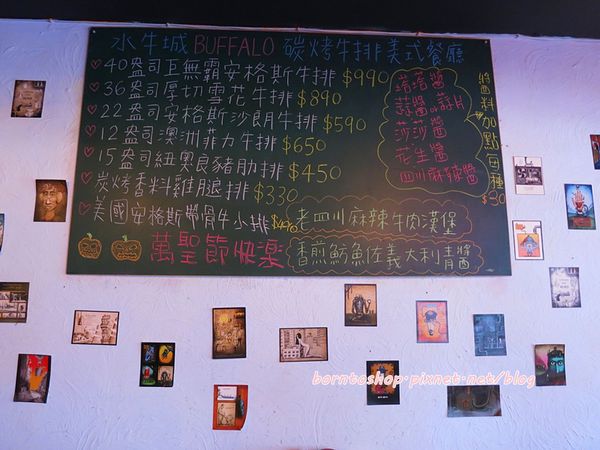 水牛城 BUFFALO 碳烤牛排美式餐廳
♡40盎司巨無霸安格斯牛排 $990
♡36盎司厚切雪花牛排 $890
♡22盎司安格斯沙朗牛排 $590
♡12盎司澳洲菲力牛排 $650
♡15盎司紐奧良豬肋排 $450
♡炭烤香料雞腿排 $330
♡美國安格斯帶骨牛小排 $490
萬聖節快樂
塔塔醬
蒜醬or蒜片
莎莎醬
花生醬
四川麻辣醬
醬料加點每種$30
老四川麻辣牛肉漢堡
香煎魴魚佐義大利青醬
borntoshop.pixnet.net/blog